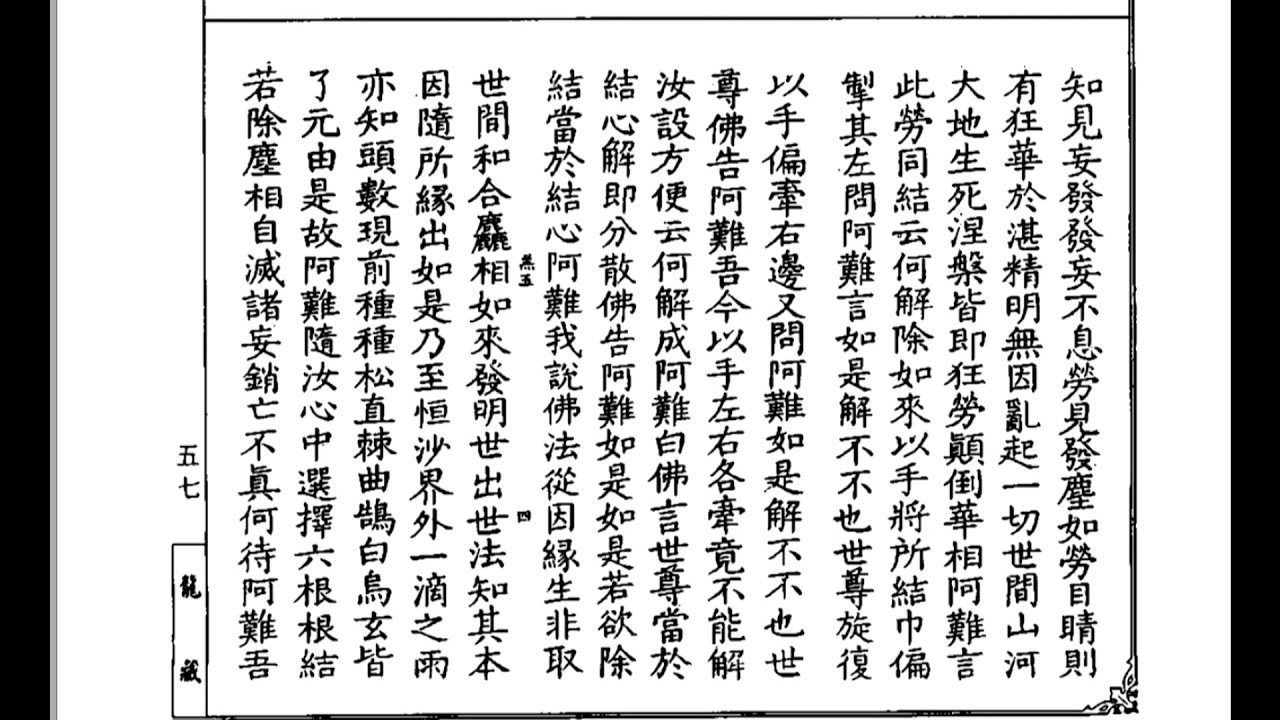 知見妄發發妄不息勞見發塵如勞目睛則
有狂華於湛精明無因亂起一切世間山河
大地生死涅槃皆即狂勞顛倒華相阿難言
此勞同結云何解除如來以手將所結巾偏
掣其左問阿難言如是解不不也世尊旋復
以手偏牽右邊又問阿難如是解不不也世
尊佛告阿難吾今以手左右各牽竟不能解
汝設方便云何解成阿難白佛言世尊當於
結心解即分散佛告阿難如是如是若欲除
結當於結心阿難我說佛法從因緣生非取
世間和合麤相如來發明世出世法知其本
因隨所緣出如是乃至恒沙界外一滴之雨
亦知頭數現前種種松直棘曲鵠白烏玄皆
了元由是故阿難隨汝心中選擇六根根結
若除塵相自滅諸妄銷亡不真何待阿難吾
五
四
五七
龍藏